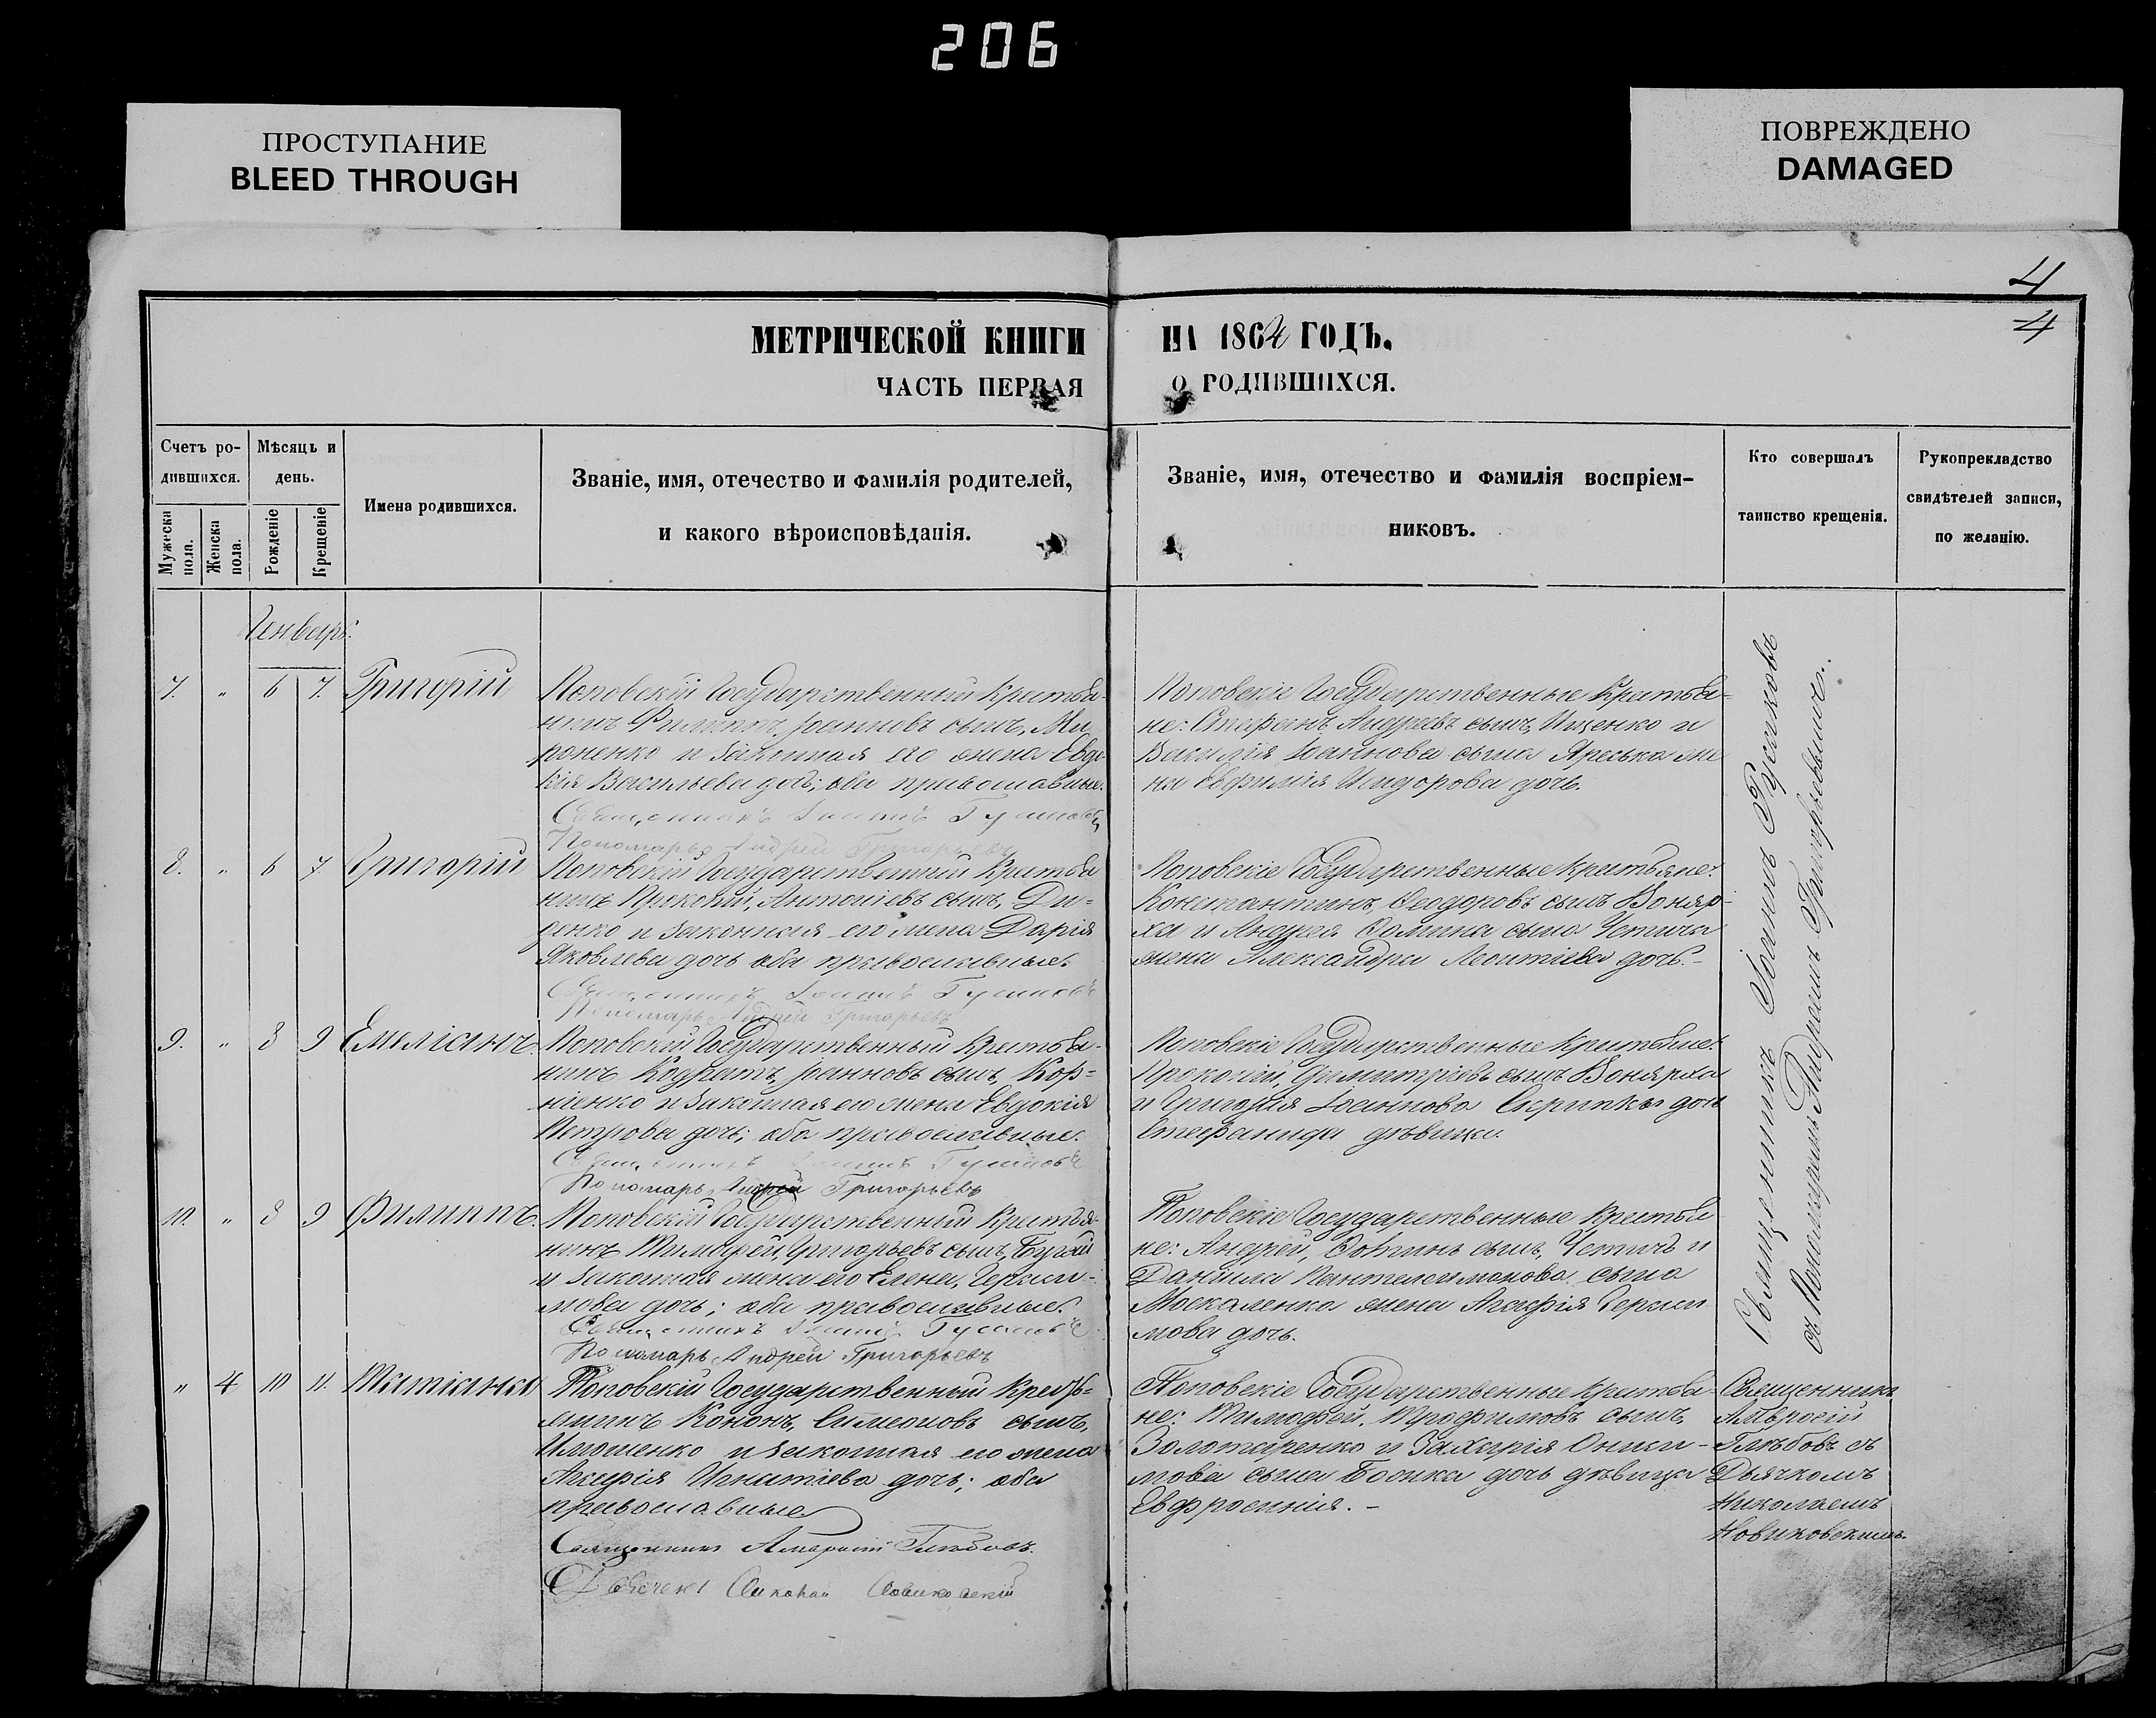 206
ПРОСТУПАНИЕ
BLEED THROUGH
ПОВРЕЖДЕНО
DAMAGED
4
4
МЕТРИЧЕСКОЙ КНИГИ НА 1864 ГОДЪ.
ЧАСТЬ ПЕРВАЯ О РОДИВШИХСЯ.
Счетъ ро-
дившихся.
Мужеска
пола.
Женска
пола.
Мѣсяць и
день.
Рожденіе
Крещеніе
Имена родившихся.
Званіе, имя, отечество и фамилія родителей,
и какого вѣроисповѣданія.
Званіе, имя, отечество и фамилія воспріем-
никовъ.
Кто совершалъ
таинство крещенія.
Рукоприкладство
свидѣтелей записи,
по желанію.
Генварь.
7. " 6 7. Григорій
Поповскій Государственный Крестья-
нинъ Филиппъ, Іоанновъ сынъ, Ми
роненко и законная его жена Евдо-
кія Васильева дочь; оба православные.
Священникъ Іоаннъ
Пономарь Андрей Григорьевъ
Поповскіе Государственные Крестья-
не: Стефанъ Андреевъ сынъ, Ищенко и
Василія Іоаннова сына Яреська же
на Евфимія Исидорова дочь.
8. " 6 7 Григорій
Поповскій Государственный Крестья
нинъ Прокопій, Антоніевъ сынъ, Ди-
денко и законная его жена Дарія
Яковлева дочь оба православные.
Священникъ Іоаннъ
Пономарь Андрей Григорьевъ
Поповскіе Государственные Крестьяне:
Константинъ, Феодоровъ сынъ Боняр-
ха и Андрея Фомина сына Четыча
жена Александра Леонтіева дочь.-
9. " 8 9 Емеліанъ.
Поповскій Государственный Крестья-
нинъ Кодратъ, Іоанновъ сынъ, Кор-
ніенко и законная его жена Евдокія
Петрова дочь; оба православные.
Священникъ Іоаннъ
Пономарь Андрей Григорьевъ
Поповскіе Государственные Крестьяне:
Прокопій, Димитріевъ сынъ Бонярха
и Григорія Іоаннова Скрипки дочь
Стефанида дѣвица.
10. " 8 9 Филиппъ.
Поповскій Государственный Крестья-
нинъ Тимофей, Григорьевъ сынъ, Бугай
и законная жена его Елена, Гераси-
мова дочь; оба православные.
Священникъ Іоаннъ
Пономарь Андрей Григорьевъ
Поповскіе Государственные Крестья
не: Андрей, Фоминъ сынъ, Четычъ и
Даніила Пантелеимонова сына
Москаленка жена Агафія Гераси
мова дочь.
Священникъ Іоаннъ
съ Пономаремъ Андреемъ Григорьевымъ.
" 4 10 11. Татіана
Поповскій Государственный Крестья-
нинъ Кононъ, Симеоновъ сынъ,
и законная его жена
Агафія Игнатіева дочь; оба
православные
Священникъ Амвросій Глѣбовъ.
Дьячекъ Николай Новиковскій
Поповскіе Государственные Крестья-
не: Тимофей, Трофимовъ сынъ,
Золотаренко и Захарія Ониси-
мова сына дочь дѣвица
Евфросинія. -
Священникъ
Амвросій
Глѣбовъ съ
Дьячкомъ
Николаемъ
Новиковскимъ.